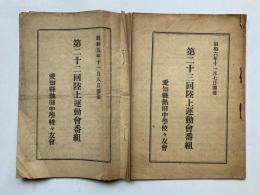 昭和六年十一月七日開催
第二十三回陸上運動會番組
愛知縣熱田中學校々友會
昭和五年十一月八日開催
第二十二回陸上運動會番組
愛知縣熱田中學校々友會